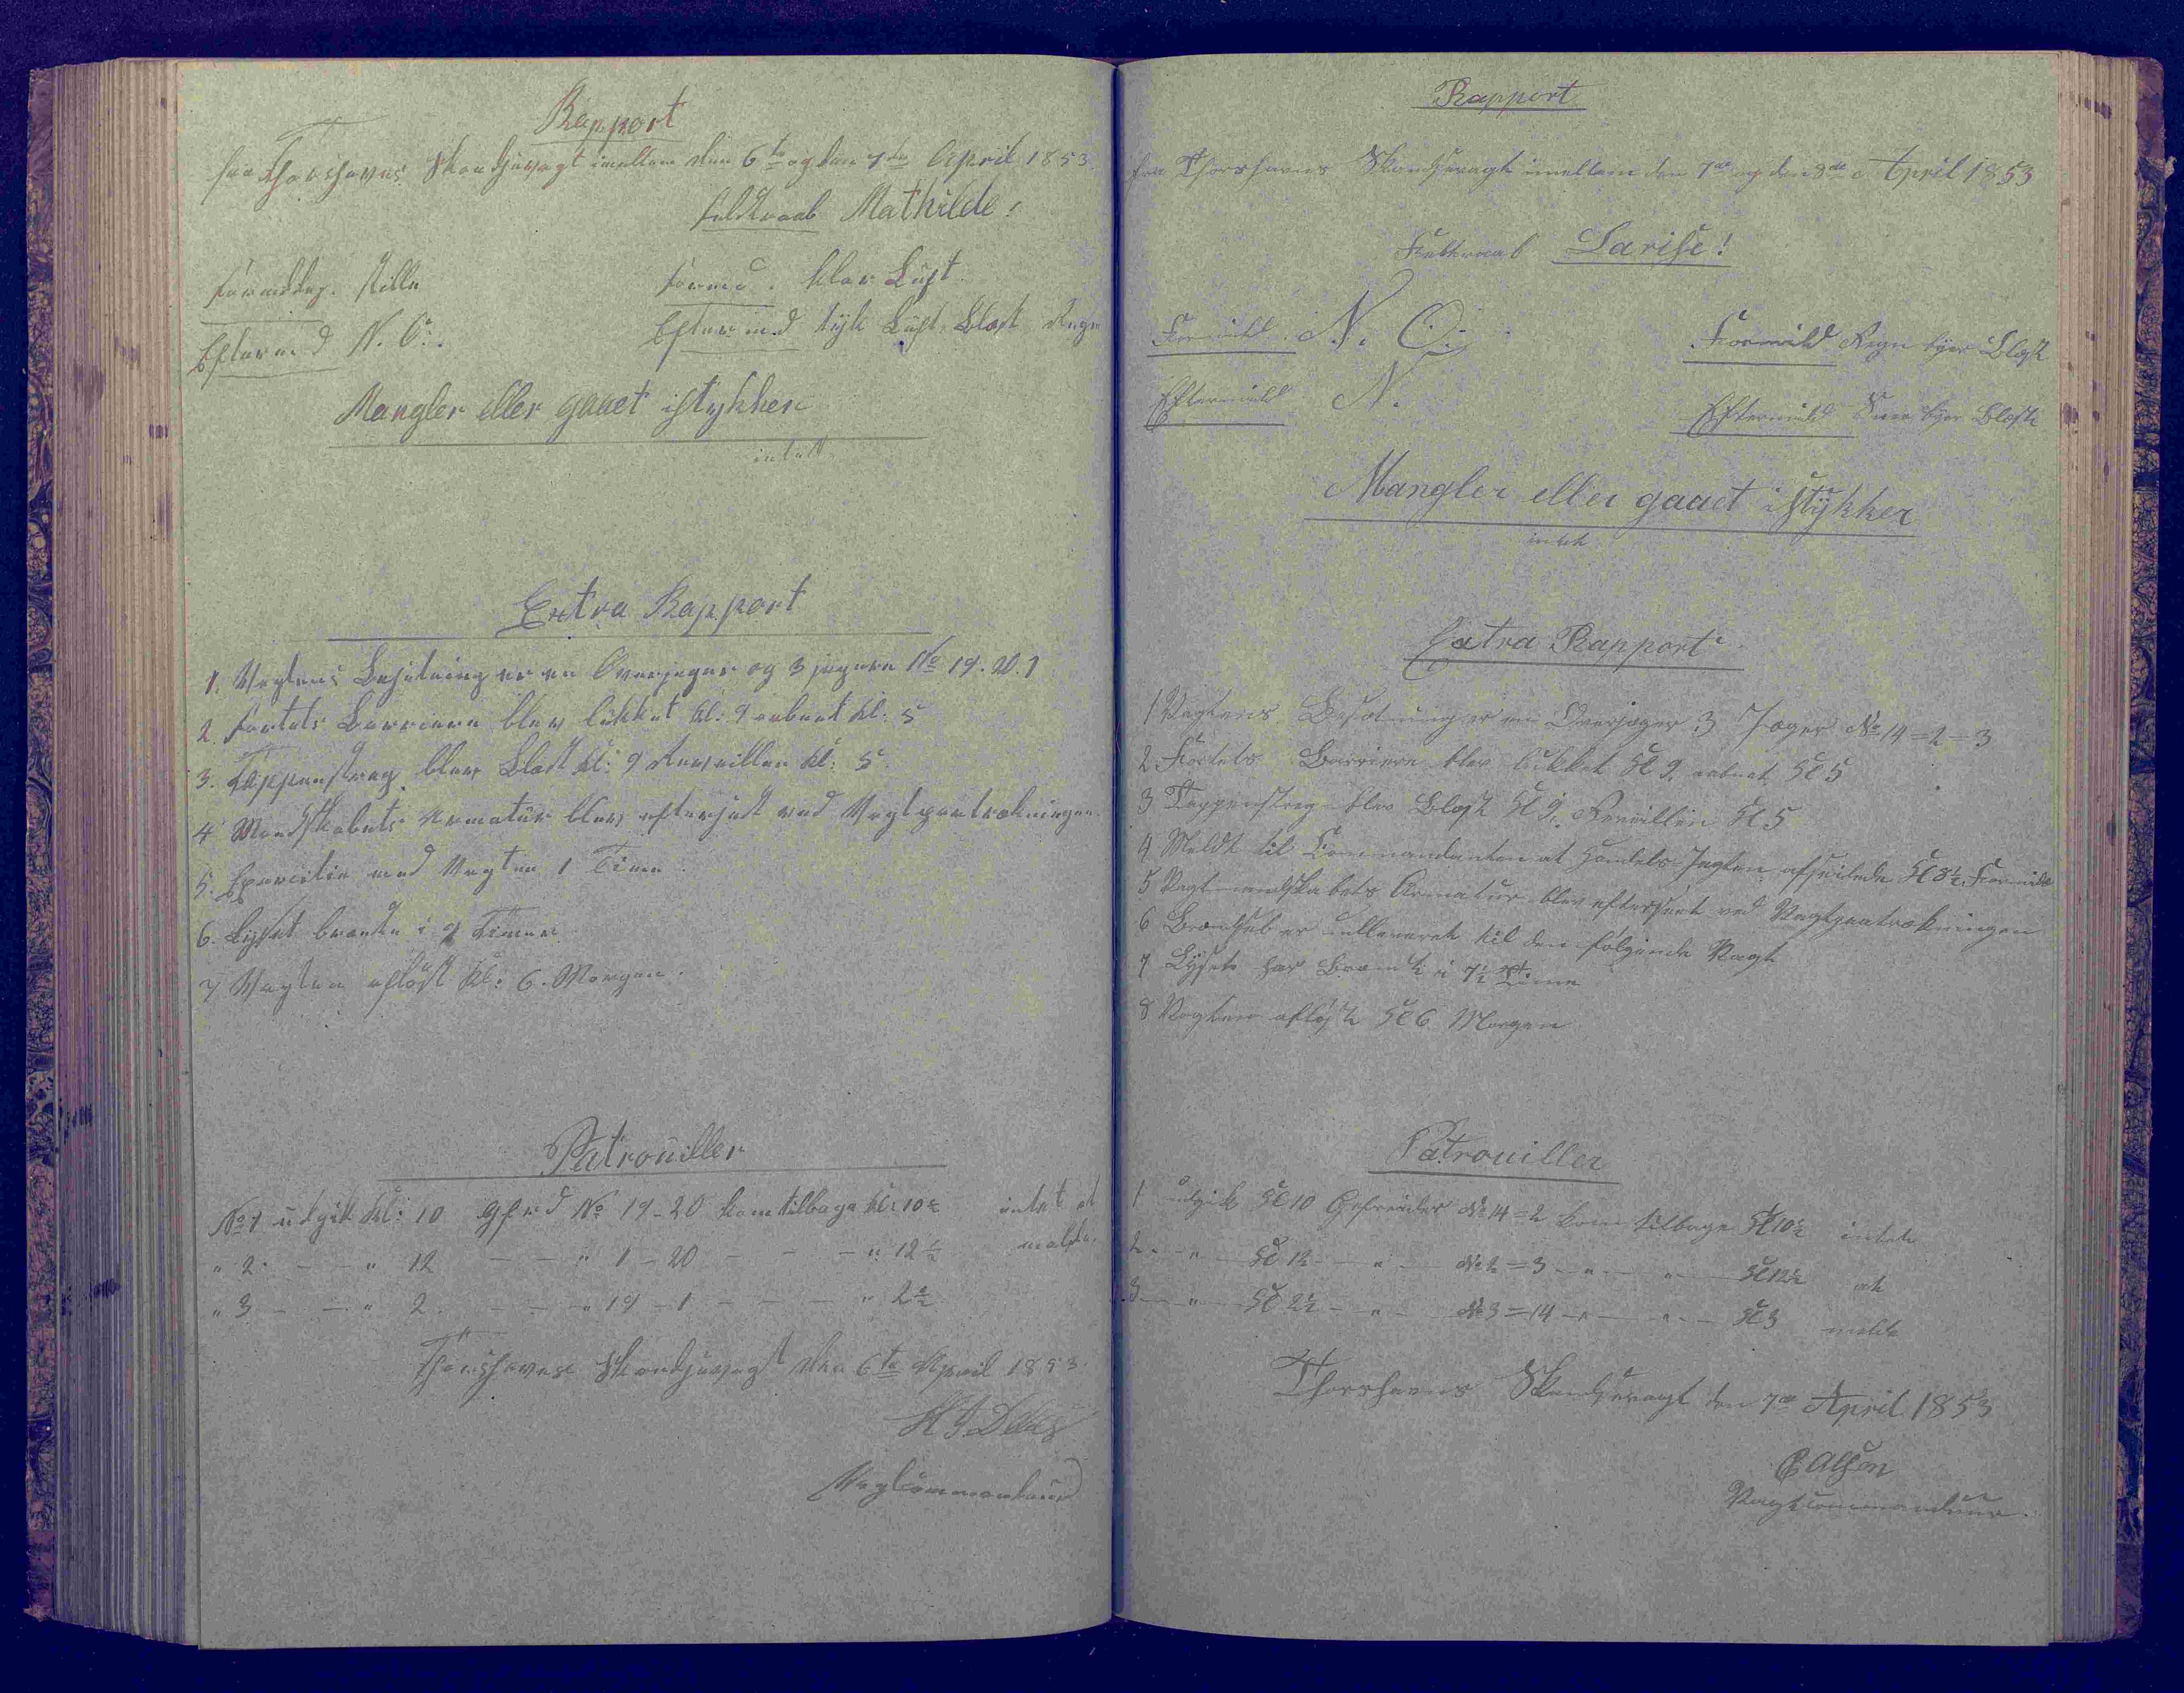 Rapport
fra Thorshavns Skandsevagt imellem den 6te og den 7de April 1853
Feldtraab Mathilde!
Formiddag. stille
Formd. klar Luft
Eftermd N. O.
Eftermd tyk Luft Blæst Regn
Mangler eller gaaet istykker
intet
Extra Rapport
1. Vagtens Besætning er en Overjæger og 3 jægere No 19. 20. 1
2. Fortets Barriere blev lukket Kl: 9 aabnet Kl: 5
3. Tappenstreg blev Blæst Kl: 9 Reveillen Kl: 5
4 Mandskabets Armatur blev efterseet ved Vagtparetrækningen
5. Exercitie med Vagten 1 Time
6. Lyset brændte i 9 Timer
7 Vagten afløst Kl: 6. Morgen.
Patrouiller
No 1 udgik kl: 10 Gefrd No 19-20 kom tilbage kl: 10½ intet at
" 2. — — " 12 — — " 1-20 — — — " 12½ melde.
" 3 — — " 2. — — " 19-1 — — — " 2½
Thorshavns Skandsevagt den 6te April 1853.
Vagtcommandeur
Rapport
fra Thorshavns Skandsevagt imellem den 7de og den 8de April 1853
Feltraab Larise!
Formidd. N. O.
Formidd Regn byer Blæst
Eftermidd N.
Eftermidd Snee byer Blæst
Mangler eller gaaet istykker
intet
Extra Rapport
1 Vagtens Besætning er en Overjæger 3 Jæger No 14=2=3
2 Fortets Barriere blev lukket Kl 9 aabnet Kl 5
3 Tappenstreg blev Blæst Kl 9. Reveillen Kl 5
4 Meldt til Commandanten at Handels-Jagten afseilede Kl 8½ Formidd
5 Vagtmandskabets Armatur blev efterseet ved Vagtparatrækningen
6 Brændsel er udleveret til den følgende Vagt
7 Lyset har Brændt i 7½ Time
8 Vagten afløst Kl 6 Morgen
Patrouiller
1 udgik Kl 10 Gefreider No 14=2 kom tilbage Kl 10½ intet
2 — " — Kl 12 — " — No 2=3 — " — " — Kl 12½ at
3 — " — Kl 2½ — " — No 3=14 — " — " — Kl 3 melde
Thorshavns Skandsevagt den 7de April 1853
Olsen
Vagtcommandeur.